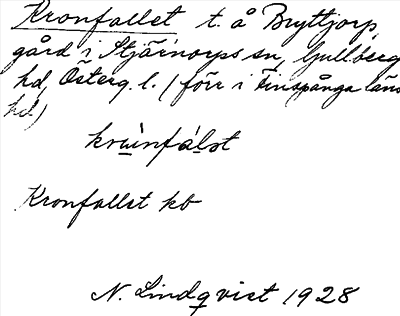 Kronfallet t. å Bryttjorp,
gård i Stjärnorps sn, Gullbergs
hd, Österg. l. (förr i Finspånga läns
hd)
kru̱̇nfálst
Kronfallet kb
N. Lindqvist 1928